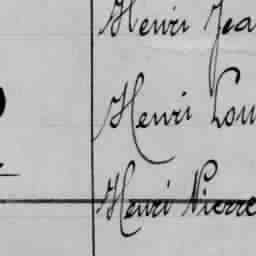 Henri Jea
Henri Lou
Henri Pierre